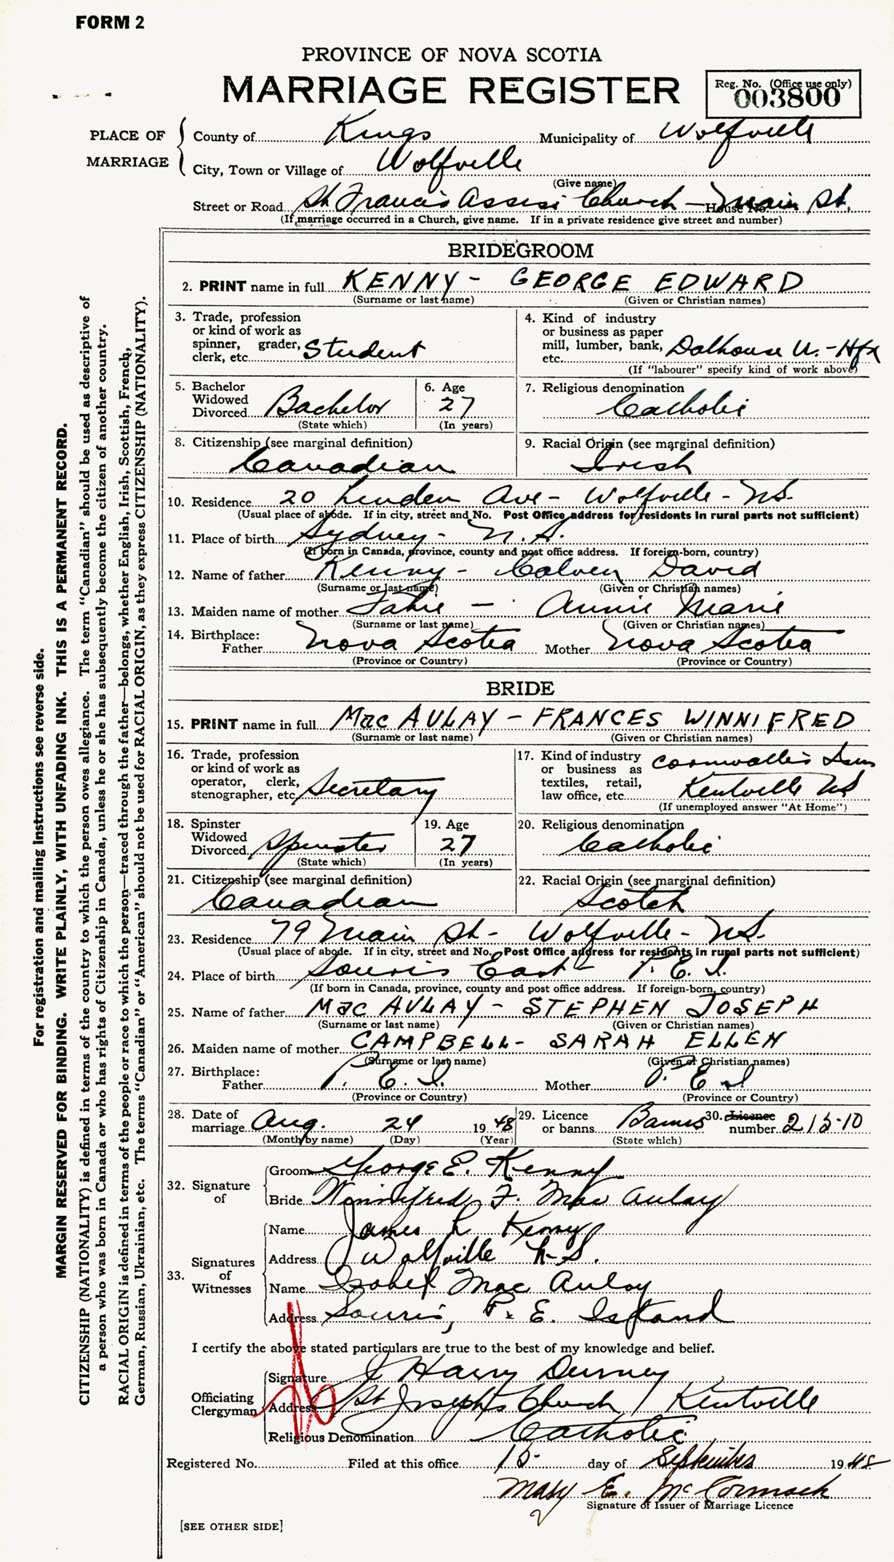 FORM 2
PROVINCE OF NOVA SCOTIA
MARRIAGE REGISTER
Reg. No. (Office use only)
003800
PLACE OF MARRIAGE
County of Kings Municipality of Wolfville
City, Town or Village of Wolfville
(Give name)
Street or Road St Francis Assisi Church — Main St. House No.
(If marriage occurred in a Church, give name. If in a private residence give street and number)
BRIDEGROOM
2. PRINT name in full KENNY - GEORGE EDWARD
(Surname or last name) (Given or Christian names)
3. Trade, profession or kind of work as spinner, grader, clerk, etc. Student
4. Kind of industry or business as paper mill, lumber, bank, etc. Dalhouse U. - Hfx
(If "labourer" specify kind of work above)
5. Bachelor Widowed Divorced Bachelor
(State which)
6. Age 27
(In years)
7. Religious denomination Catholic
8. Citizenship (see marginal definition) Canadian
9. Racial Origin (see marginal definition) Irish
10. Residence 20 Linden Ave - Wolfville - NS.
(Usual place of abode. If in city, street and No. Post Office address for residents in rural parts not sufficient)
11. Place of birth Sydney - N.S.
(If born in Canada, province, county and post office address. If foreign-born, country)
12. Name of father Kenny - Calven David
(Surname or last name) (Given or Christian names)
13. Maiden name of mother Fahie - Annie Marie
(Surname or last name) (Given or Christian names)
14. Birthplace: Father Nova Scotia Mother Nova Scotia
(Province or Country) (Province or Country)
BRIDE
15. PRINT name in full Mac AULAY - FRANCES WINNIFRED
(Surname or last name) (Given or Christian names)
16. Trade, profession or kind of work as operator, clerk, stenographer, etc. Secretary
17. Kind of industry or business as textiles, retail, law office, etc. Cornwallis Inn Kentville NS
(If unemployed answer "At Home")
18. Spinster Widowed Divorced Spinster
(State which)
19. Age 27
(In years)
20. Religious denomination Catholic
21. Citizenship (see marginal definition) Canadian
22. Racial Origin (see marginal definition) Scotch
23. Residence 79 Main St - Wolfville - NS.
(Usual place of abode. If in city, street and No. Post Office address for residents in rural parts not sufficient)
24. Place of birth Souris East - P.E.I.
(If born in Canada, province, county and post office address. If foreign-born, country)
25. Name of father Mac AULAY - STEPHEN JOSEPH
(Surname or last name) (Given or Christian names)
26. Maiden name of mother CAMPBELL - SARAH ELLEN
(Surname or last name) (Given or Christian names)
27. Birthplace: Father P. E. I. Mother P. E I
(Province or Country) (Province or Country)
28. Date of marriage Aug. 24 1948
(Month by name) (Day) (Year)
29. Licence or banns Banns
(State which)
30. Licence number 215-10
32. Signature of
Groom George E. Kenny
Bride Winnifred F. Mac Aulay
33. Signatures of Witnesses
Name James L. Kenny
Address Wolfville N-S.
Name Izabel Mac Aulay
Address Souris, P. E. Island
I certify the above stated particulars are true to the best of my knowledge and belief.
Officiating Clergyman
Signature J Harry Durney
Address St Joseph's Church Kentville
Religious Denomination Catholic
Registered No. Filed at this office 15 day of September 1948
Mary E. McCormack
Signature of Issuer of Marriage Licence
[SEE OTHER SIDE]
For registration and mailing instructions see reverse side.
MARGIN RESERVED FOR BINDING. WRITE PLAINLY, WITH UNFADING INK. THIS IS A PERMANENT RECORD.
CITIZENSHIP (NATIONALITY) is defined in terms of the country to which the person owes allegiance. The term "Canadian" should be used as descriptive of
a person who was born in Canada or who has rights of Citizenship in Canada, unless he or she has subsequently become the citizen of another country.
RACIAL ORIGIN is defined in terms of the people or race to which the person—traced through the father—belongs, whether English, Irish, Scottish, French,
German, Russian, Ukrainian, etc. The terms "Canadian" or "American" should not be used for RACIAL ORIGIN, as they express CITIZENSHIP (NATIONALITY).